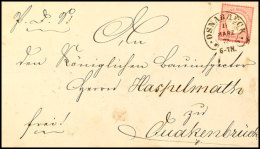 P. D. 9.
OSNABRÜCK
MÄRZ
6-7N.
An
den Königlichen Bauinspector
Herrn Haspelmath
zu
frei!
Quakenbrück